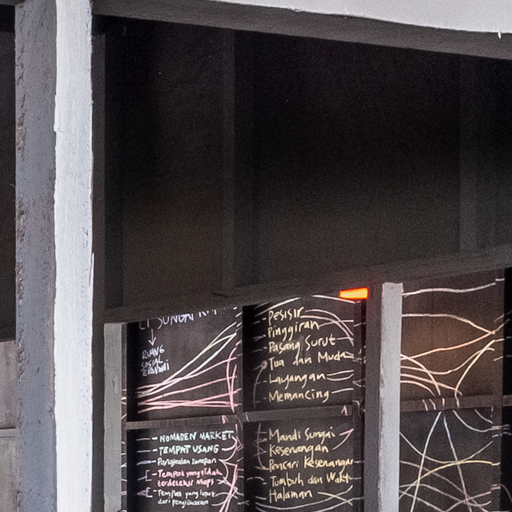 SUNGAI
RUANG
SOSIAL
- Pesisir
- Pinggiran
- Pasang Surut
- Tua dan Muda
- Layangan
- Memancing
- NOMADEN MARKET
- TEMPAT USANG
- Tempat yang tidak
terdeteksi Maps
- Tempat yang luput
dari penglihatan
- Mandi Sungai
- Kesenangan
- Pencari Kesenangan
- Tumbuh dan
- Halaman